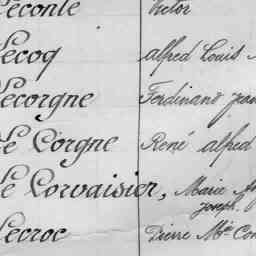 Leconte Victor
Lecoq Alfred Louis
Lecorgne Ferdinand
Le Corgne René Alfred
Le Corvaisier, Marie
Joseph
Lecroc Pierre Mie